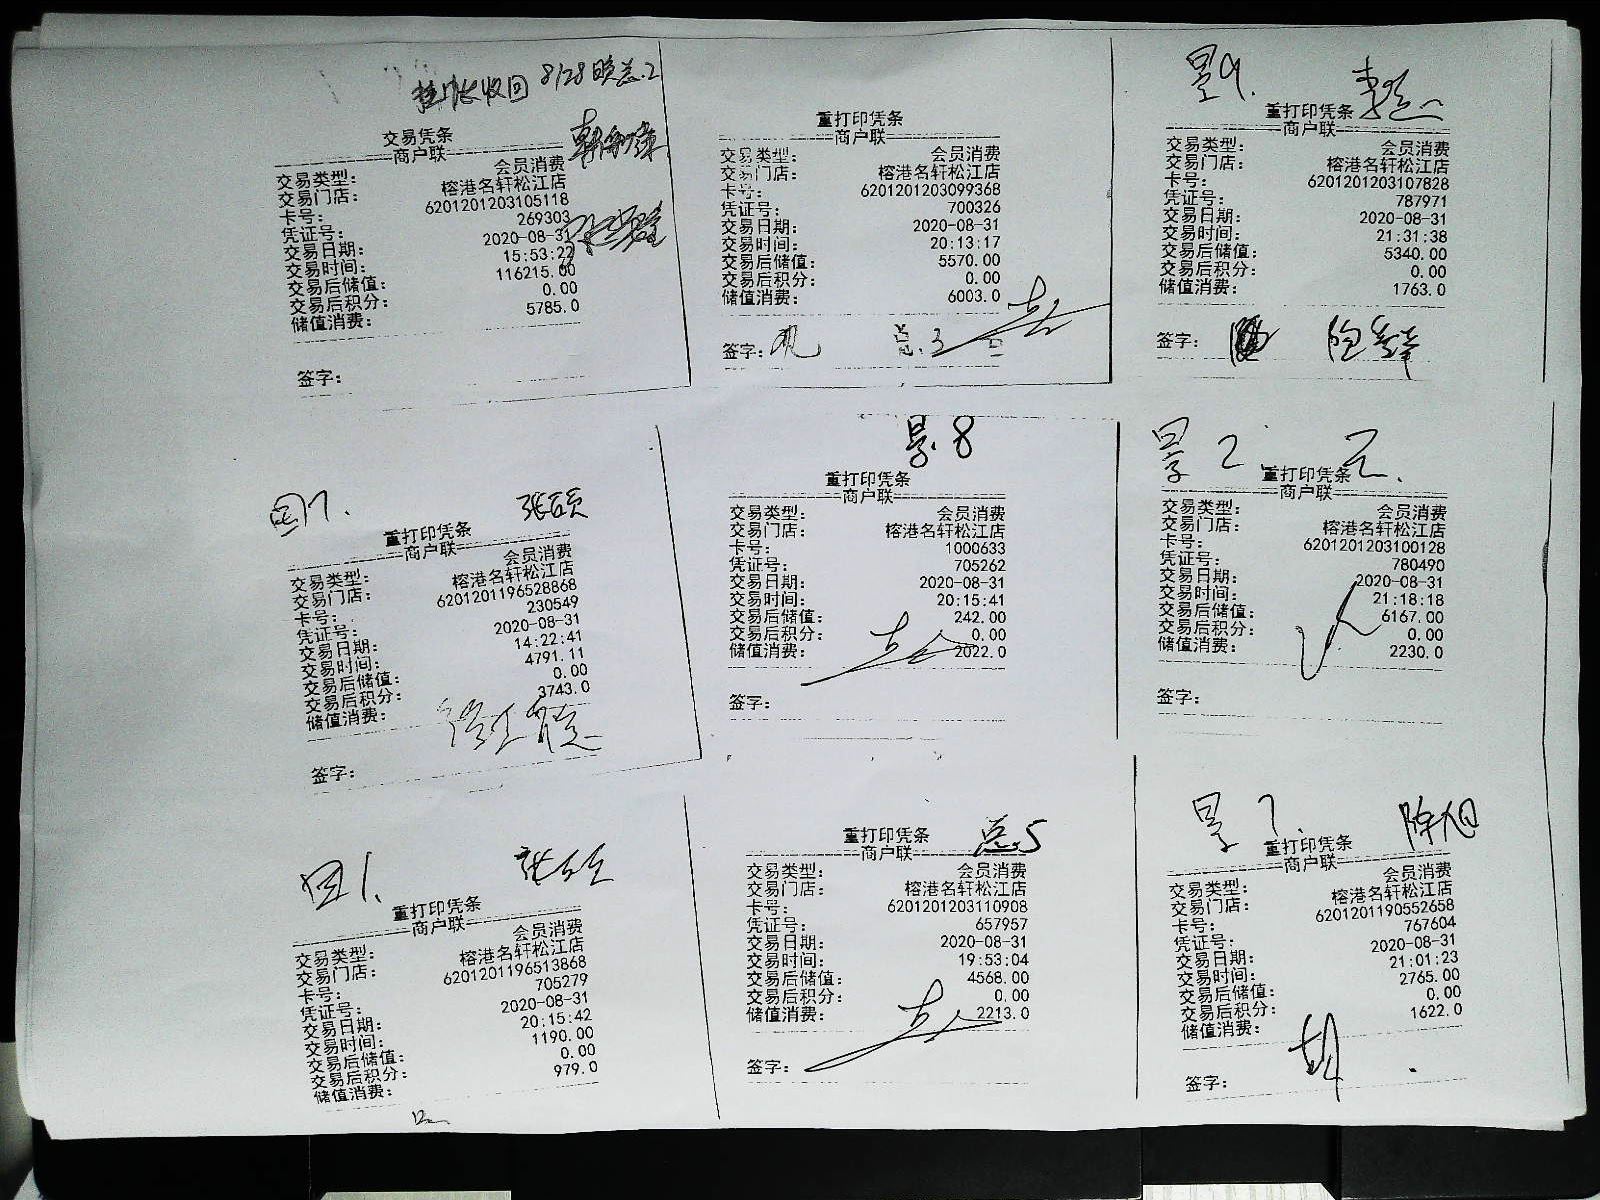 挂账收回 8/28 晚总.2
交易凭条
商户联
交易类型： 会员消费
交易门店： 榕港名轩松江店
卡号： 6201201203105118
凭证号： 269303
交易日期： 2020-08-31
交易时间： 15:53:22
交易后储值： 116215.00
交易后积分： 0.00
储值消费： 5785.0
签字：
重打印凭条
商户联
交易类型： 会员消费
交易门店： 榕港名轩松江店
卡号： 6201201203099368
凭证号： 700326
交易日期： 2020-08-31
交易时间： 20:13:17
交易后储值： 5570.00
交易后积分： 0.00
储值消费： 6003.0
签字：
景9.
重打印凭条
商户联
交易类型： 会员消费
交易门店： 榕港名轩松江店
卡号： 6201201203107828
凭证号： 787971
交易日期： 2020-08-31
交易时间： 21:31:38
交易后储值： 5340.00
交易后积分： 0.00
储值消费： 1763.0
签字：
张硕
重打印凭条
商户联
交易类型： 会员消费
交易门店： 榕港名轩松江店
卡号： 6201201196528868
凭证号： 230549
交易日期： 2020-08-31
交易时间： 14:22:41
交易后储值： 4791.11
交易后积分： 0.00
储值消费： 3743.0
签字：
景.8
重打印凭条
商户联
交易类型： 会员消费
交易门店： 榕港名轩松江店
卡号： 1000633
凭证号： 705262
交易日期： 2020-08-31
交易时间： 20:15:41
交易后储值： 242.00
交易后积分： 0.00
储值消费： 2022.0
签字：
景2.
重打印凭条
商户联
交易类型： 会员消费
交易门店： 榕港名轩松江店
卡号： 6201201203100128
凭证号： 780490
交易日期： 2020-08-31
交易时间： 21:18:18
交易后储值： 6167.00
交易后积分： 0.00
储值消费： 2230.0
签字：
重打印凭条
商户联
交易类型： 会员消费
交易门店： 榕港名轩松江店
卡号： 6201201196513868
凭证号： 705279
交易日期： 2020-08-31
交易时间： 20:15:42
交易后储值： 1190.00
交易后积分： 0.00
储值消费： 979.0
总.5
重打印凭条
商户联
交易类型： 会员消费
交易门店： 榕港名轩松江店
卡号： 6201201203110908
凭证号： 657957
交易日期： 2020-08-31
交易时间： 19:53:04
交易后储值： 4568.00
交易后积分： 0.00
储值消费： 2213.0
签字：
景7.
重打印凭条
商户联
交易类型： 会员消费
交易门店： 榕港名轩松江店
卡号： 6201201190552658
凭证号： 767604
交易日期： 2020-08-31
交易时间： 21:01:23
交易后储值： 2765.00
交易后积分： 0.00
储值消费： 1622.0
签字：